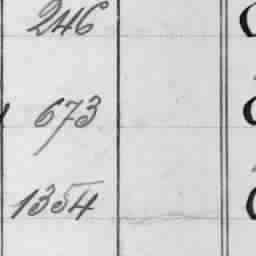 246
673
1354